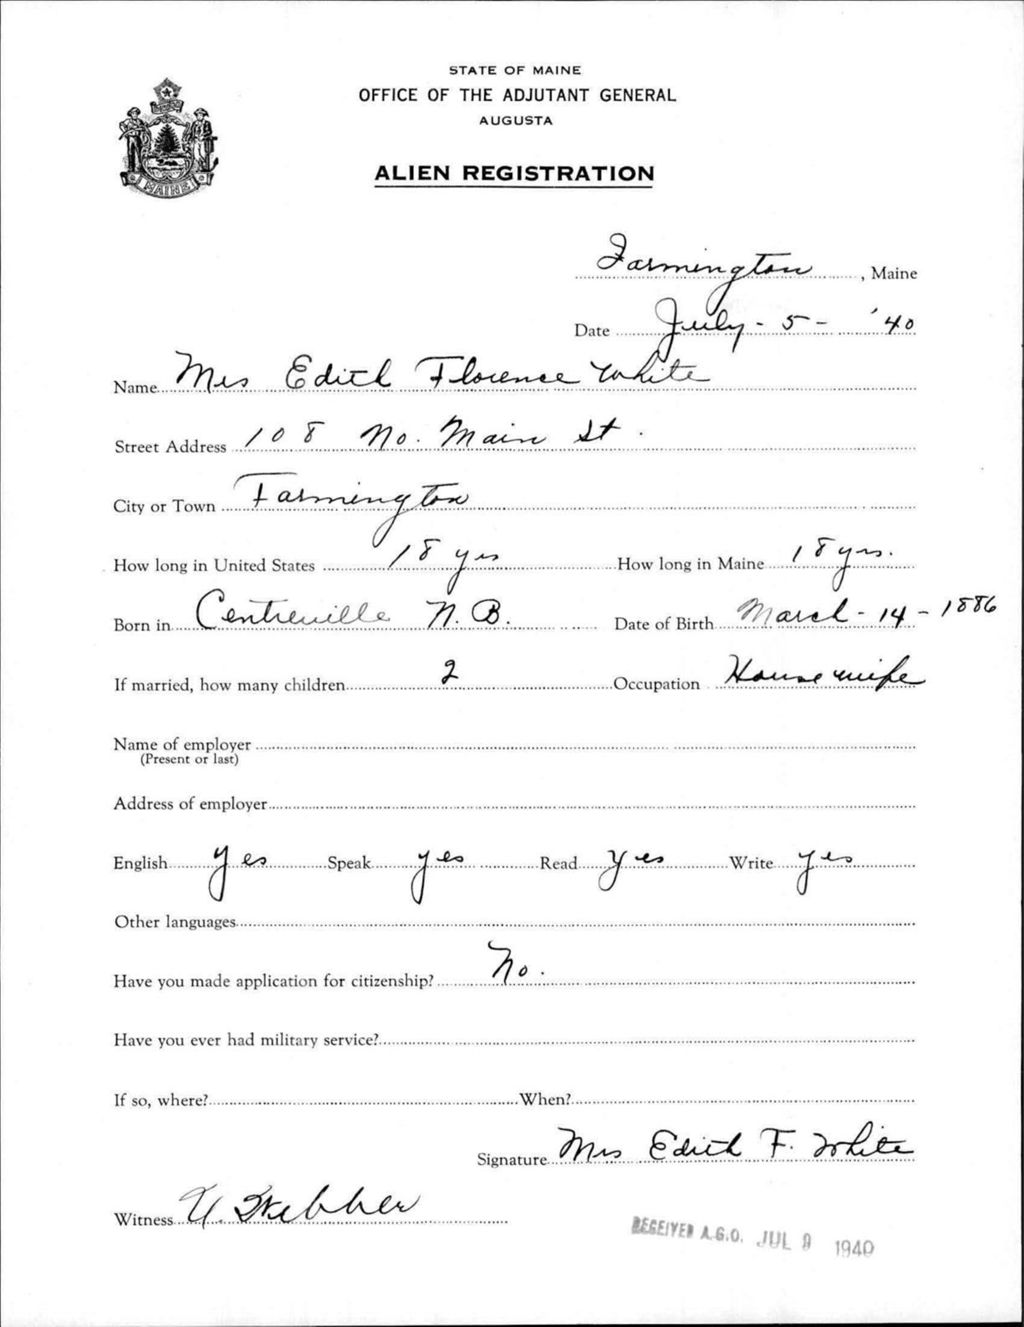 STATE OF MAINE
OFFICE OF THE ADJUTANT GENERAL
AUGUSTA
MAINE
ALIEN REGISTRATION
Farmington, Maine
Date July - 5 - '40
Name Mrs Edith Florence White
Street Address 108 No. Main St.
City or Town Farmington
How long in United States 18 yrs How long in Maine 18 yrs.
Born in Centreville N.B. Date of Birth March - 14 - 1886
If married, how many children 2 Occupation Housewife
Name of employer
(Present or last)
Address of employer
English yes Speak yes Read yes Write yes
Other languages
Have you made application for citizenship? No.
Have you ever had military service?
If so, where? When?
Signature Mrs Edith F. White
Witness Webber
RECEIVED A.G.O. JUL 9 1940